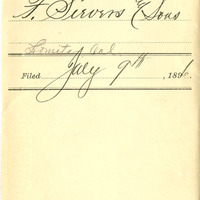 F. Sievers & Sons
Lomita, Cal
Filed July 9th, 1896